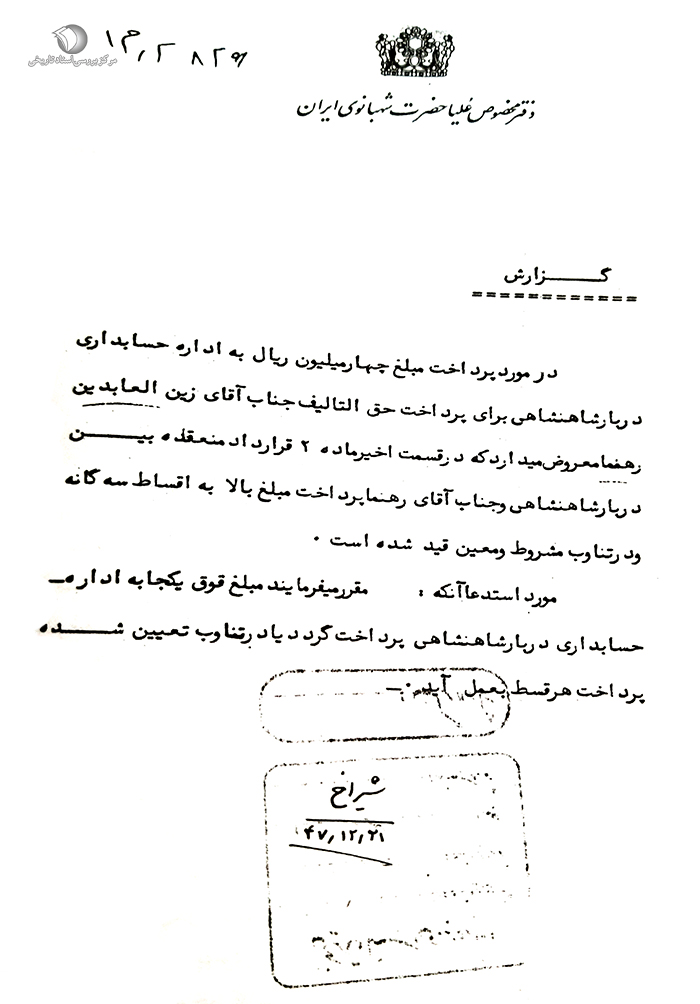 مرکز بررسی اسناد تاریخی
دفتر مخصوص علیاحضرت شهبانوی ایران
گزارش
============
در مورد پرداخت مبلغ چهارمیلیون ریال به اداره حسابداری
دربار شاهنشاهی برای پرداخت حق التالیف جناب آقای زین العابدین
رهنما معروض میدارد که در قسمت اخیر ماده ۲ قرارداد منعقده بین
دربار شاهنشاهی و جناب آقای رهنما پرداخت مبلغ بالا به اقساط سه گانه
و در تناوب مشروط و معین قید شده است .
مورد استدعا آنکه : مقرر میفرمایند مبلغ فوق یکجا به اداره
حسابداری دربار شاهنشاهی پرداخت گردد یا در تناوب تعیین شده
پرداخت هر قسط بعمل آید .
۴۷/۱۲/۲۱